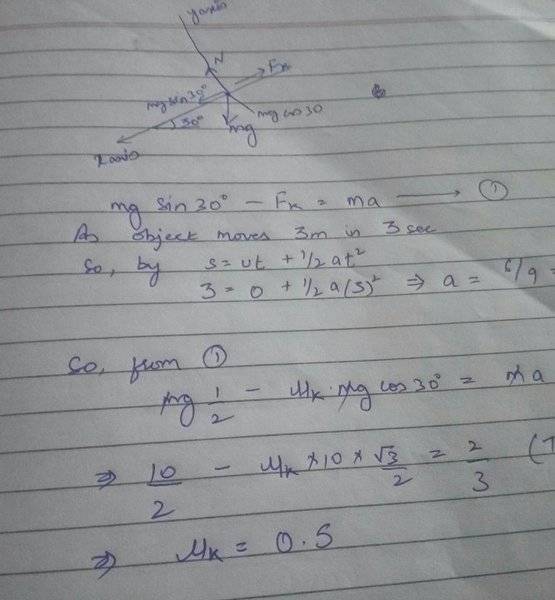 y axis
N
Fₖ
mg sin 30°
mg cos 30
30°
mg
x axis
mg sin 30° - Fₖ = ma ⟶ ①
As object moves 3m in 3 sec
So, by s = ut + 1/2 at²
3 = 0 + 1/2 a(3)² ⇒ a = 6/9 =
So, from ①
mg 1/2 - μₖ mg cos 30° = m a
⇒ 10/2 - μₖ × 10 × √3/2 = 2/3 (
⇒ μₖ = 0.5